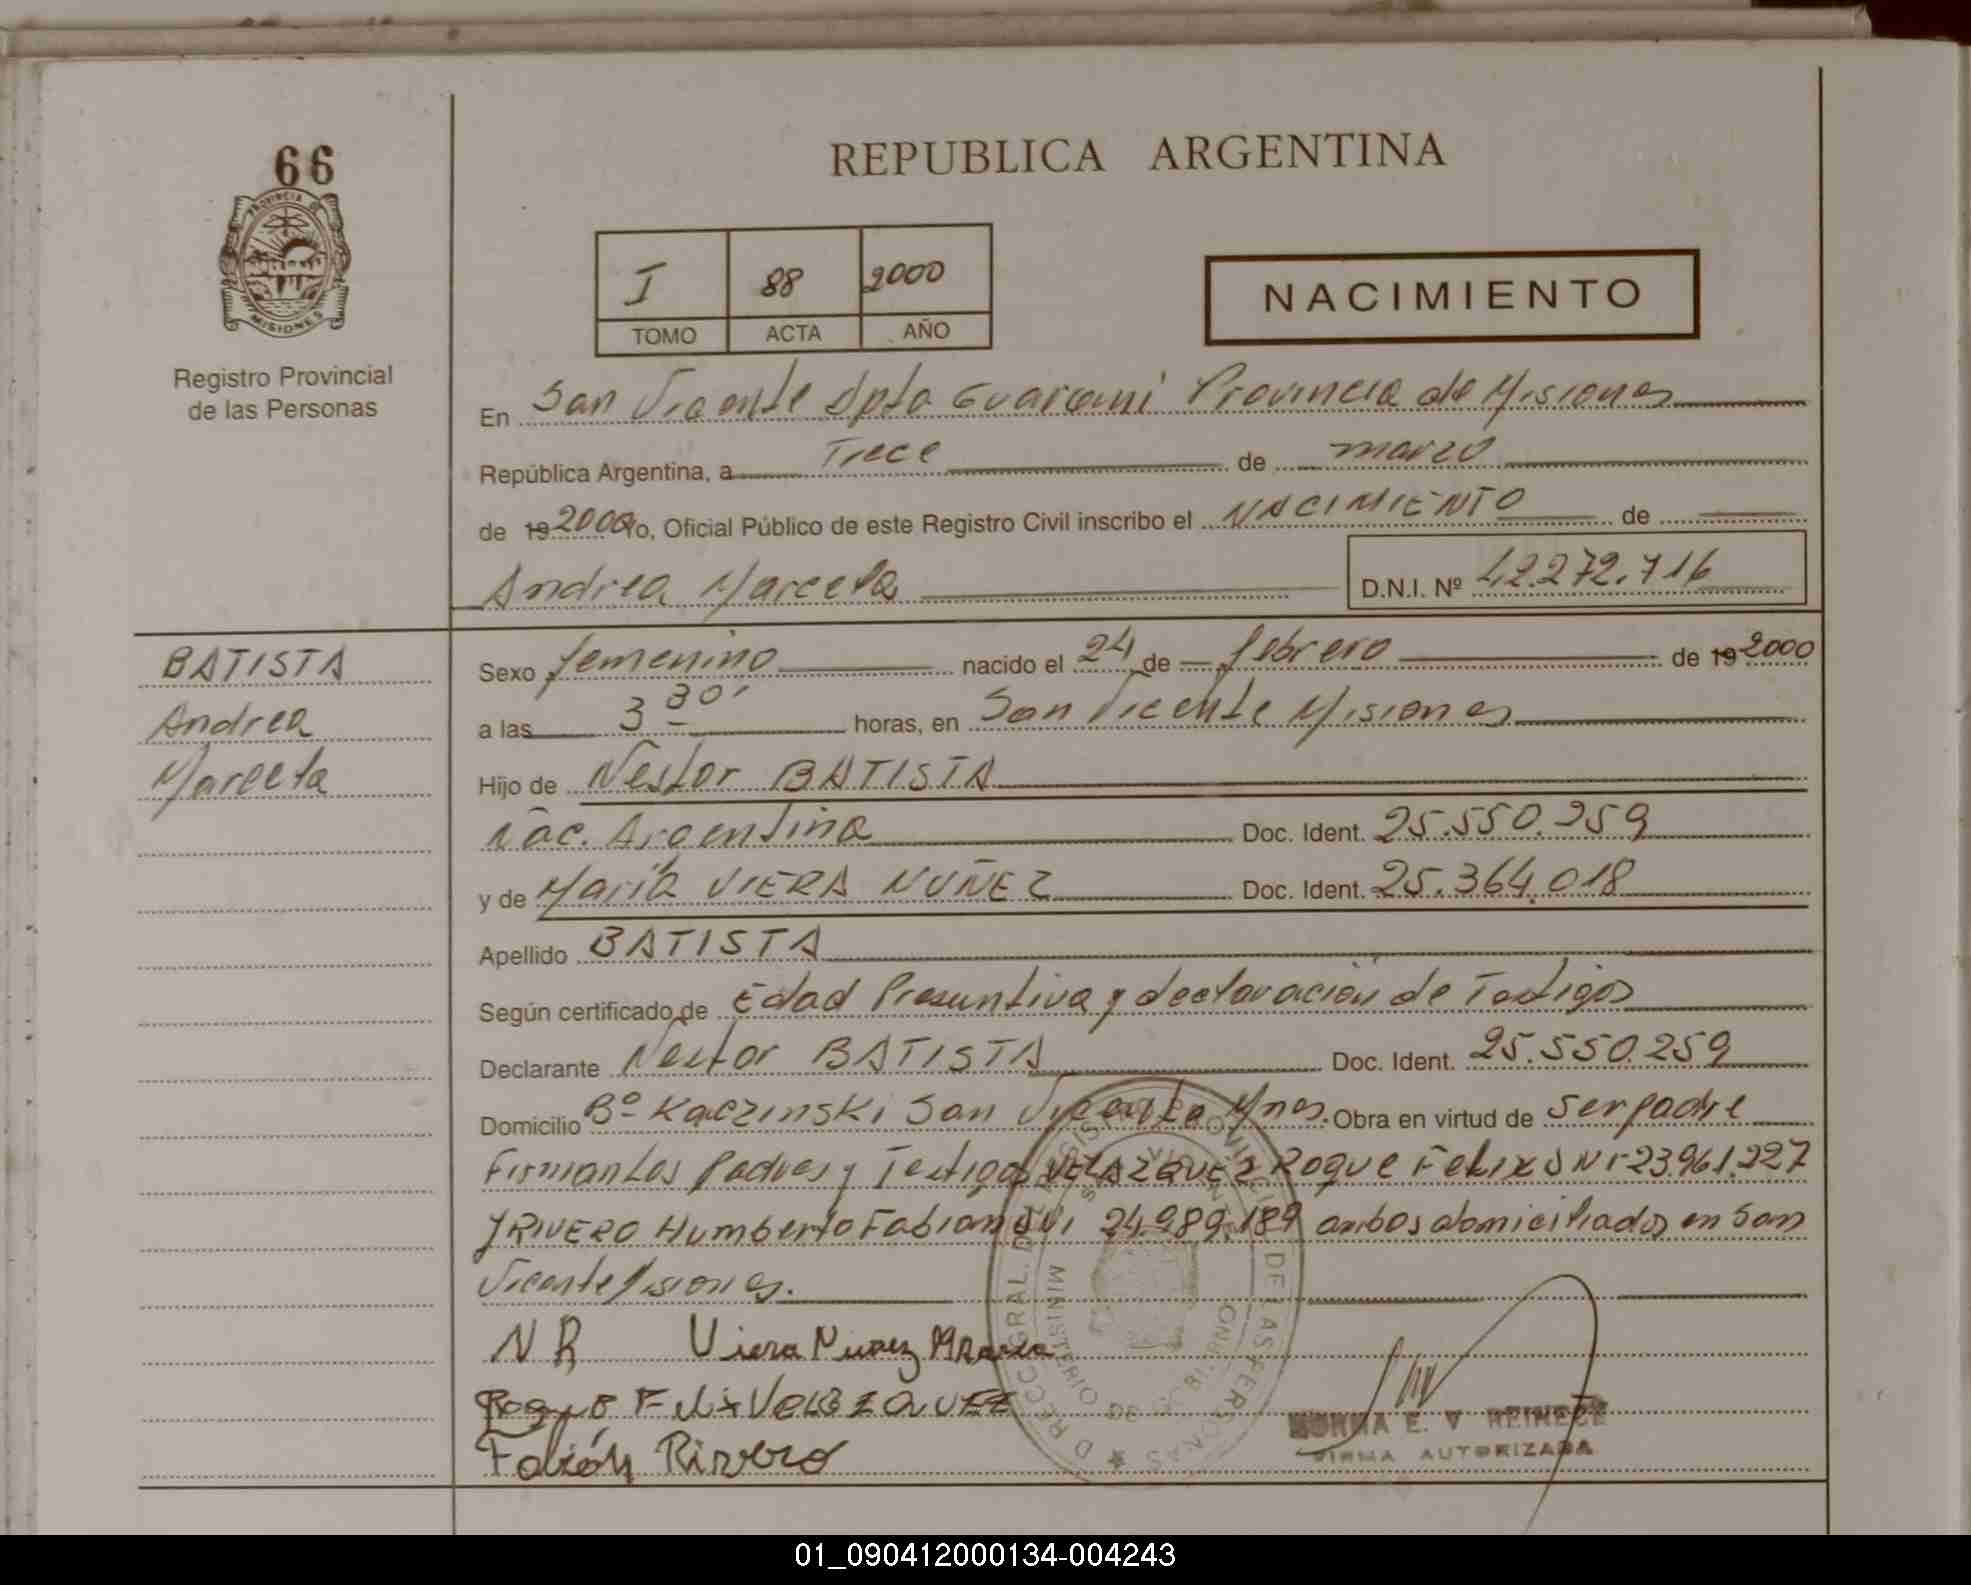 REPUBLICA ARGENTINA
66
PROVINCIA DE
MISIONES
Registro Provincial
de las Personas
I 88 2000
TOMO ACTA AÑO
NACIMIENTO
En San Vicente Dpto Guarani Provincia de Misiones
República Argentina, a Trece de marzo
de 19 2000 Yo, Oficial Público de este Registro Civil inscribo el NACIMIENTO de
Andrea Marcela D.N.I. Nº 42.272.716
BATISTA
Andrea
Marcela
Sexo femenino nacido el 24 de febrero de 19 2000
a las 3 30' horas, en San Vicente Misiones
Hijo de Nestor BATISTA
Nac. Argentina Doc. Ident. 25.550.259
y de María VIERA NUÑEZ Doc. Ident. 25.364.018
Apellido BATISTA
Según certificado de Edad Presuntiva y declaración de Testigos
Declarante Nestor BATISTA Doc. Ident. 25.550.259
Domicilio Bº Kaczinski San Vicente Mnes. Obra en virtud de ser padre
Firmantes Padres y Testigos VELAZQUEZ Roque Felix DNI 23.961.227
y RIVERO Humberto Fabian DNI 24.989.189 ambos domiciliados en San
Vicente Misiones.
N B Viera Nuñez Maria
Roque Felix VELAZQUEZ
Fabián Rivero
NORMA E. V REINECE
FIRMA AUTORIZADA
01_090412000134-004243